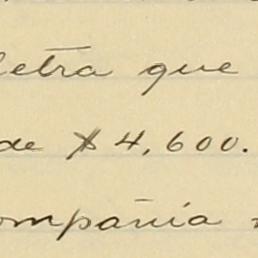 letra que
de $4,600.
ompañia